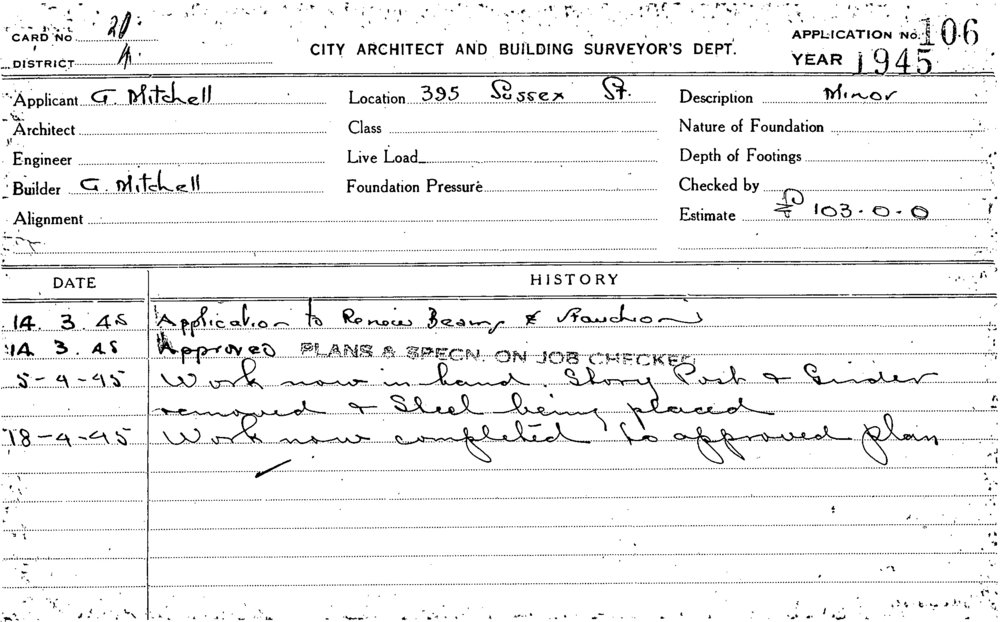 CARD No 20
DISTRICT A.
CITY ARCHITECT AND BUILDING SURVEYOR'S DEPT.
APPLICATION No. 106
YEAR 1945
Applicant G. Mitchell
Location 395 Sussex St.
Description Minor
Architect
Class
Nature of Foundation
Engineer
Live Load
Depth of Footings
Builder G. Mitchell
Foundation Pressure
Checked by
Alignment
Estimate £ 103.0.0
DATE HISTORY
14 3 45 Application to Renew Beams & Stanchions
14 3 45 Approved PLANS & SPECN. ON JOB CHECKED
5-4-45 Work now in hand. Story Post & Girder
removed & Steel being placed
18-4-45 Work now completed to approved plan